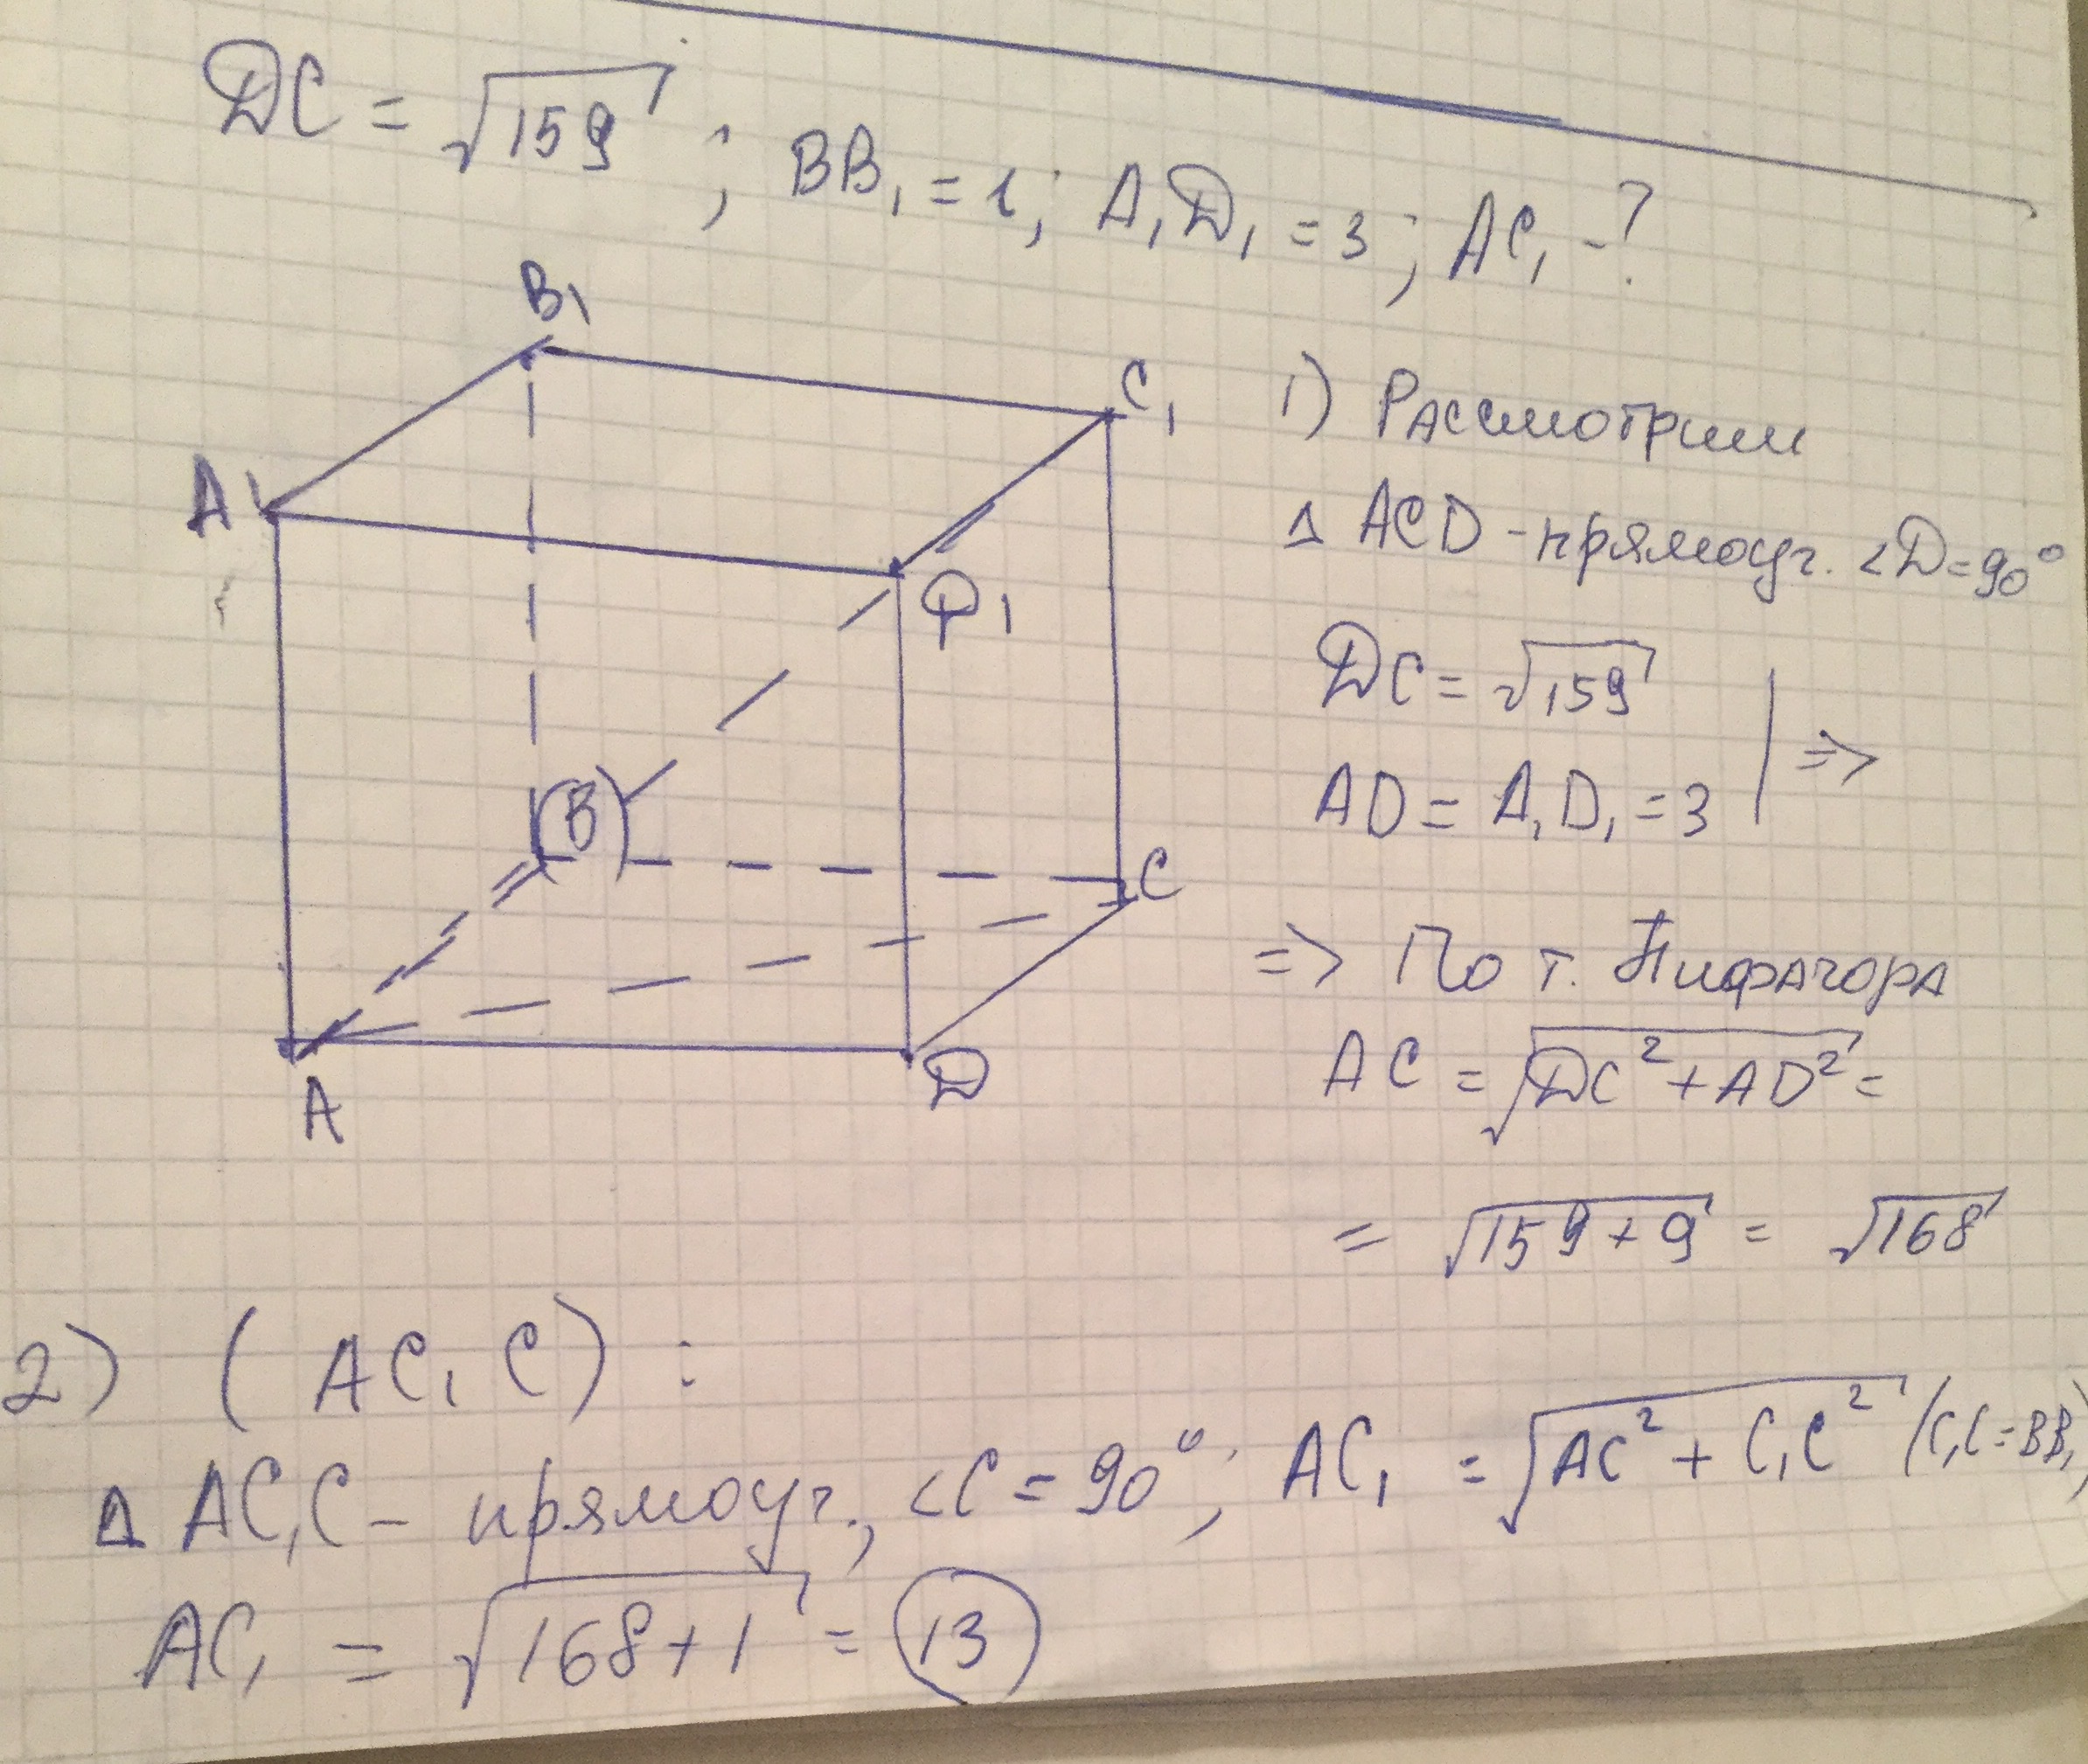 DC = √159 ; BB₁ = 1; A₁D₁ = 3; AC₁ - ?
B₁
C₁
1) Рассмотрим
A₁
Δ ACD - прямоуг. <D = 90°
D₁
DC = √159
(B)
AD = A₁D₁ = 3 | =>
C
=> По т. Пифагора
A
D
AC = √DC² + AD² =
= √159 + 9 = √168
2) (AC₁C) :
Δ AC₁C - прямоуг., <C = 90°; AC₁ = √AC² + C₁C² (C₁C = BB₁)
AC₁ = √168 + 1 = 13